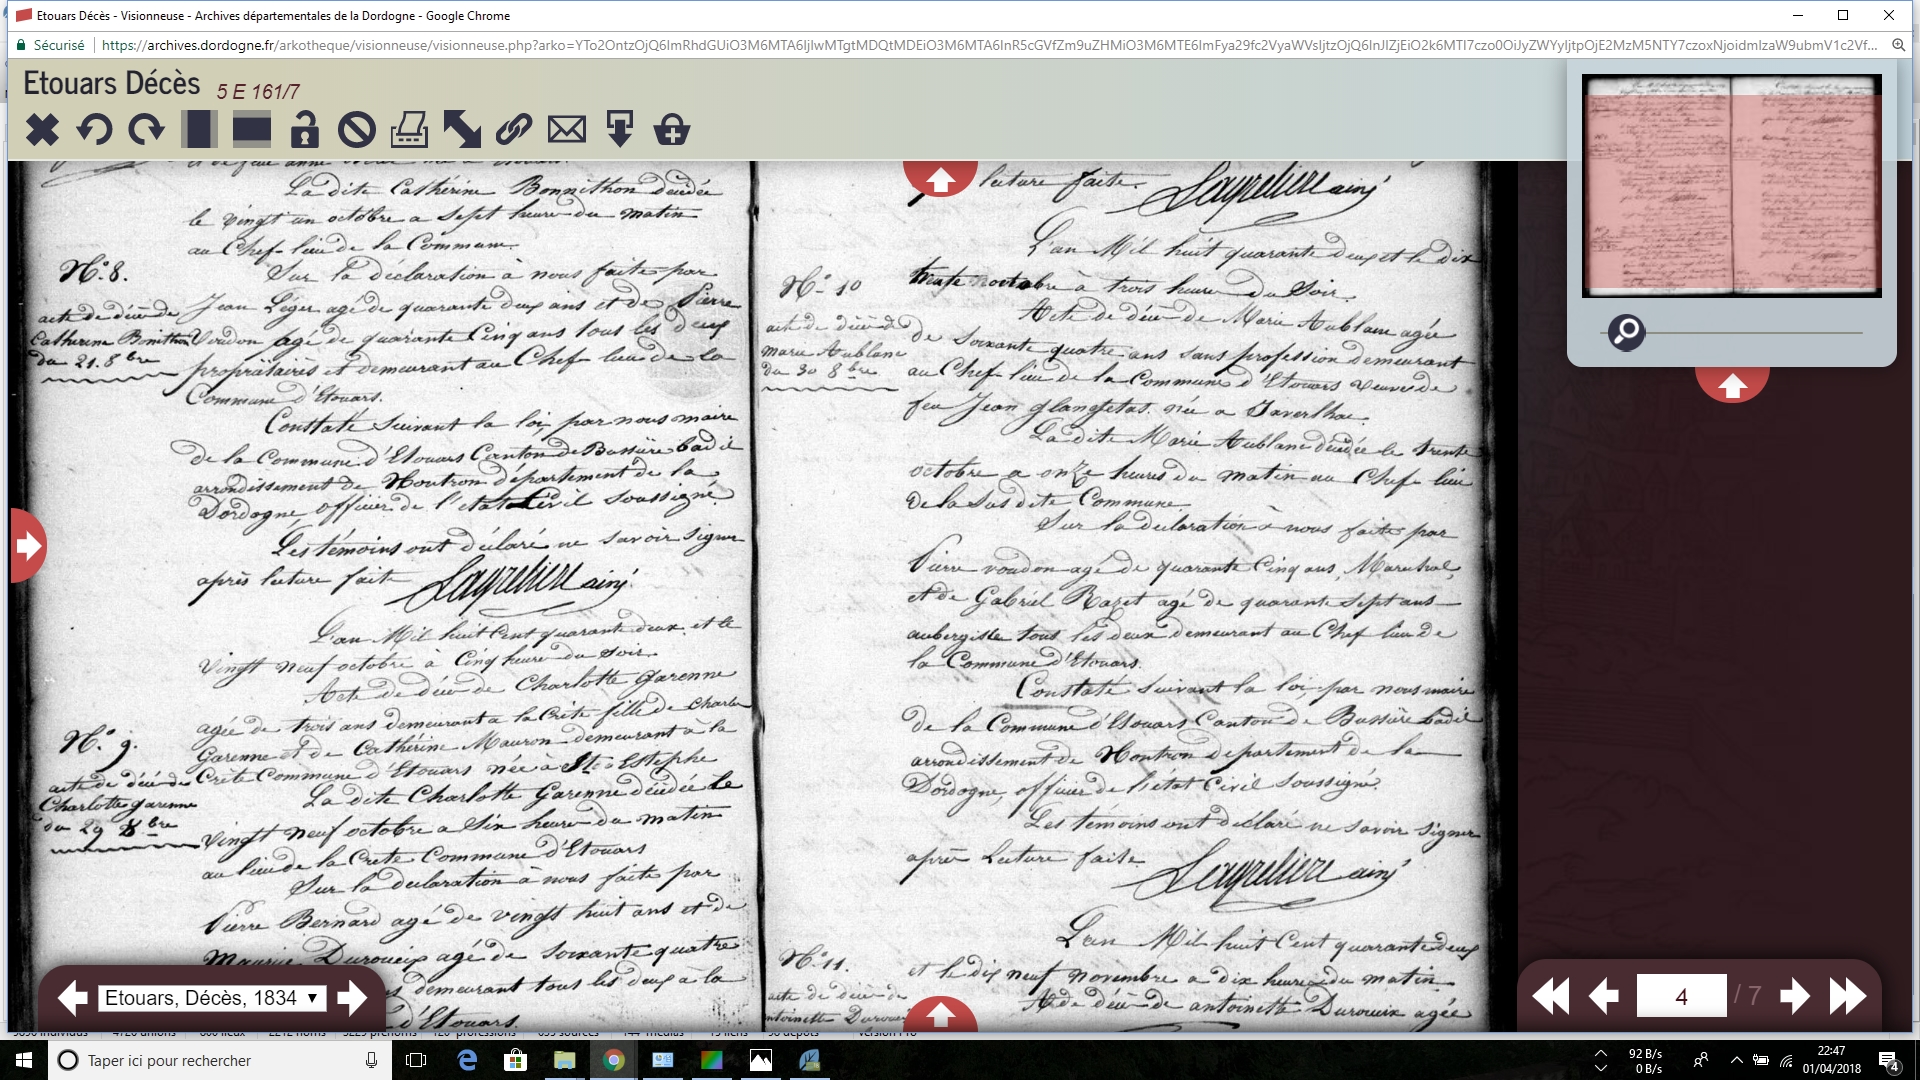 Etouars Décès - Visionneuse - Archives départementales de la Dordogne - Google Chrome
Sécurisé
Etouars Décès 5 E 161/7
La dite Cathérine Bonnithon décédée
le vingt un octobre a sept heure du matin
au Chef-lieu de la Commune.
N.º 8.
acte de décès de
Catherine Bonithon
du 21. 8bre
Sur la déclaration à nous faite par
Jean Léger agé de quarante deux ans et de Pierre
Voudon agé de quarante Cinq ans tous les deux
propriétaires et demeurant au Chef lieu de la
Commune d'Etouars.
Constaté suivant la loi, par nous maire
de la Commune d'Etouars Canton de Bussière badil
arrondissement de Nontron département de la
Dordogne, officier de l'état Civil soussigné
Les témoins ont déclaré ne savoir signer
après lecture faite Layrelière ainé
L'an Mil huit Cent quarante deux et le
vingt neuf octobre à Cinq heure du Soir.
Acte de décès de Charlotte Garenne
N.º 9.
acte de décès de
Charlotte garenne
du 29 8bre
agée de trois ans demeurant a la Crête fille de Charles
Garenne et de Cathérine Mauron demeurant à la
Crête Commune d'Etouars née à St Estèphe
La dite Charlotte Garenne décédée le
Vingt neuf octobre a Six heure du matin
au lieu de la Crete Commune d'Etouars
Sur la déclaration à nous faite par
Pierre Bernard agé de vingt huit ans et de
Maurice Duroueix agé de soixante quatre
demeurant tous les deux a la
d'Etouars.
lecture faite. Layrelière ainé
L'an Mil huit quarante deux et le dix
octobre à trois heure du Soir.
N.º 10
acte de décès de
marie Aublane
du 30 8bre
Acte de décès de Marie Aublane agée
de Soixante quatre ans sans profession demeurant
au Chef-lieu de la Commune d'Etouars veuve de
feu Jean glangetas née a Javerlhac
La dite Marie Aublane décédée le trente
octobre a onze heures du matin au Chef-lieu
de la Sus dite Commune
Sur la déclaration à nous faite par
Pierre voudon agé de quarante Cinq ans, Marechal,
et de Gabriel Razet agé de quarante sept ans
aubergiste tous les deux demeurant au Chef lieu de
la Commune d'Etouars.
Constaté suivant la loi par nous maire
de la Commune d'Etouars Canton de Bussière badil
arrondissement de Nontron département de la
Dordogne, officier de l'état Civil soussigné.
Les témoins ont déclaré ne savoir signer
après Lecture faite Layrelière ainé
L'an Mil huit Cent quarante deux
et le dix neuf novembre a dix heure du matin
N.º 11.
acte de décès de
antoinette Durouei
Acte de décès de antoinette Duroueix agée
Etouars, Décès, 1834
4 / 7
Taper ici pour rechercher
92 B/s
0 B/s
22:47
01/04/2018
4